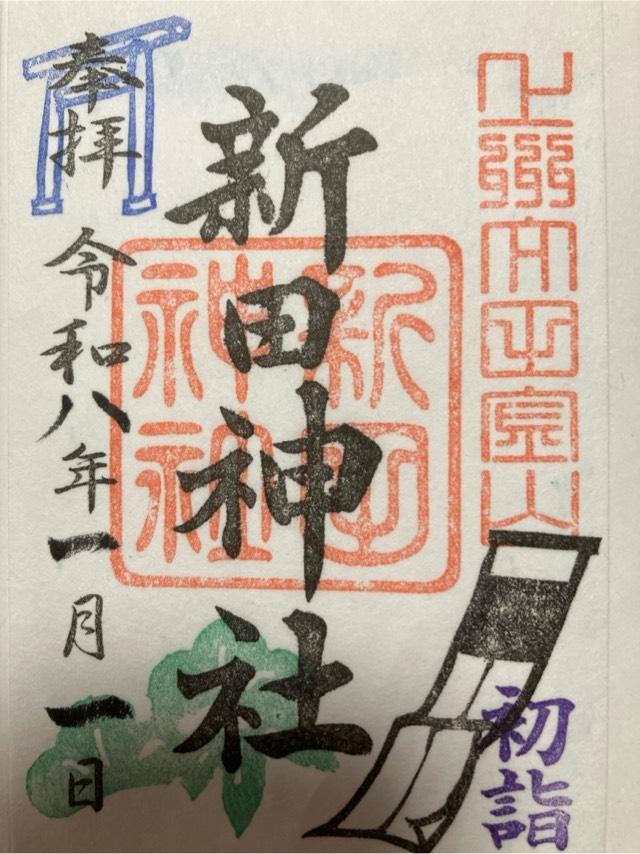 上州太田金山
初詣
新田神社
新田
神社
奉拝
令和八年一月一日